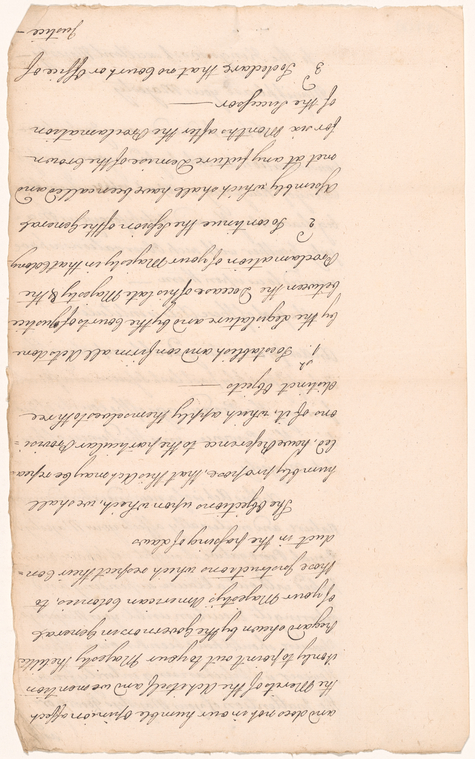 and does not in our humble Opinion affect
the Merits of the Act itself, and we mention
it only to point out to your Majesty the little
Regard shewn by the Governors in general
of your Majesty's American Colonies, to
those Instructions which respect their Con=
duct in the passing of Laws
The Objections upon which, we shall
humbly propose, that this Act may be repea=
led, have Reference to the particular Provisi=
ons of it, which apply themselves to three
distinct Objects —
1st To establish and confirm all Acts done
by the Legislature and by the Courts of Justice
between the Decease of his late Majesty & the
Proclamation of your Majesty in that Colony
2d To continue the Session of the General
Assembly, which shall have been called and
met at any future Demise of the Crown
for six Months after the Proclamation
of the Successor —
3d To declare that no Court or Office of
Justice —